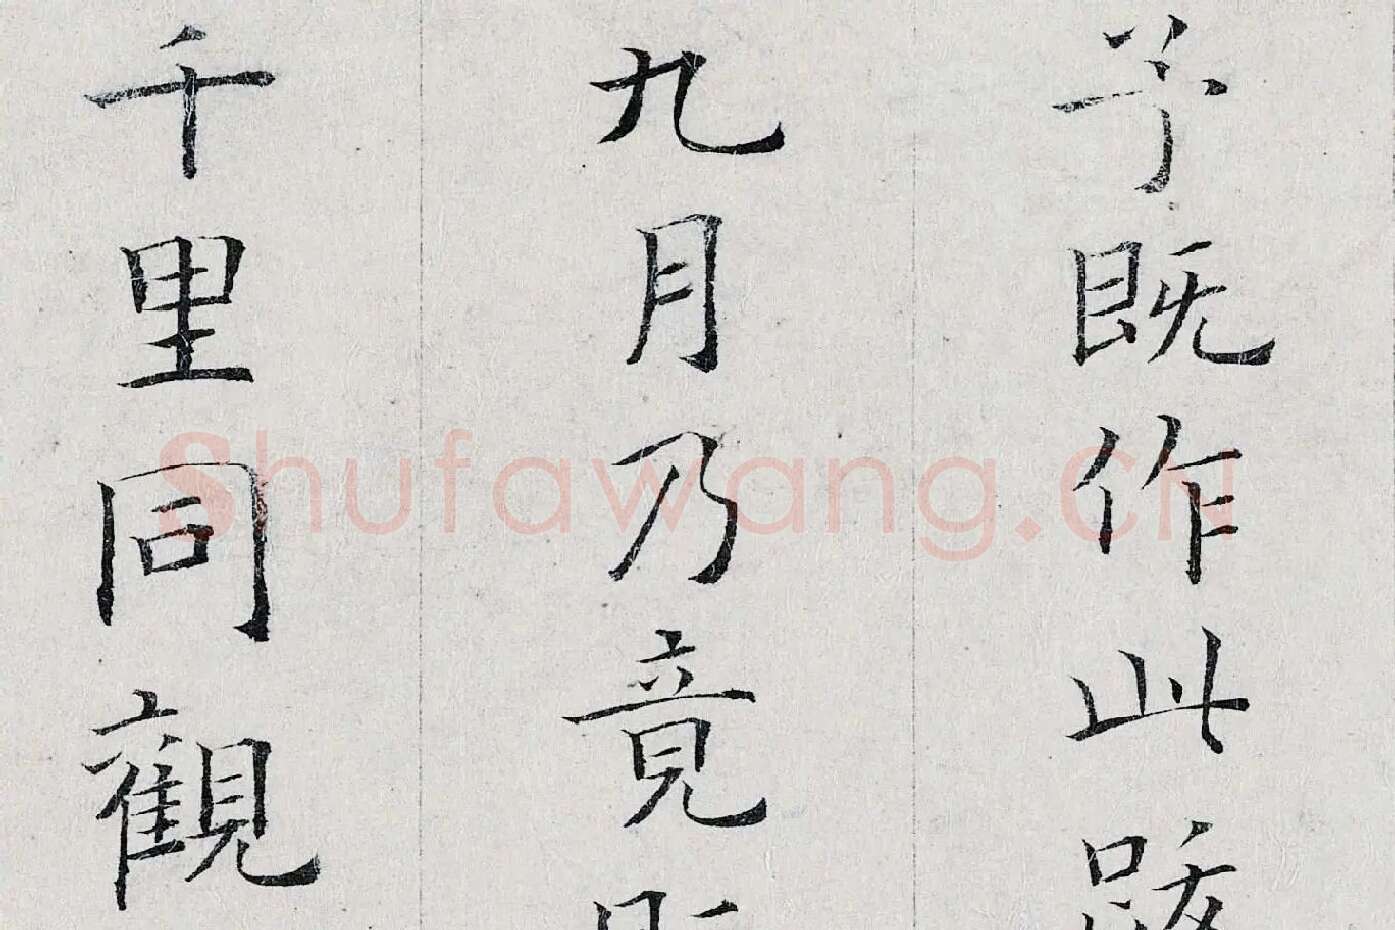 予既作此跋
九月乃竟
千里同觀
shufawang.cn